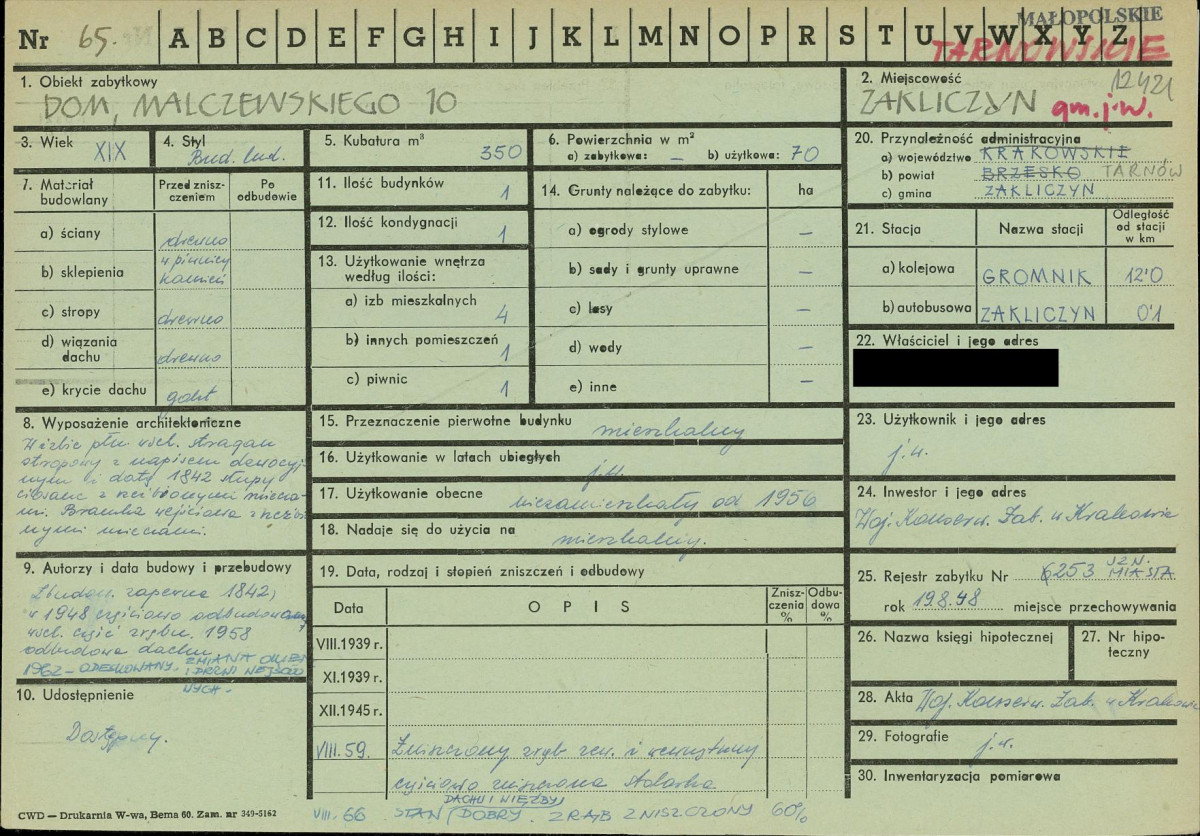 Nr 65. A B C D E F G H I J K L M N O P R S T U V W X Y Z
MAŁOPOLSKIE
TARNOWSKIE
1. Obiekt zabytkowy
DOM, MALCZEWSKIEGO 10
2. Miejscowość 12421
ZAKLICZYN gm.j.w.
3. Wiek XIX
4. Styl Bud. lud.
5. Kubatura m³ 350
6. Powierzchnia w m²
a) zabytkowa: – b) użytkowa: 70
20. Przynależność administracyjna
a) województwo KRAKOWSKIE
b) powiat BRZESKO TARNÓW
c) gmina ZAKLICZYN
7. Materiał budowlany
Przed znisz-
czeniem
Po
odbudowie
a) ściany drewno
b) sklepienia w piwnicy
kamień
c) stropy drewno
d) wiązania
dachu drewno
e) krycie dachu gont
11. Ilość budynków 1
12. Ilość kondygnacji 1
13. Użytkowanie wnętrza
według ilości:
a) izb mieszkalnych 4
b) innych pomieszczeń 1
c) piwnic 1
14. Grunty należące do zabytku: ha
a) ogrody stylowe –
b) sady i grunty uprawne –
c) lasy –
d) wody –
e) inne –
21. Stacja Nazwa stacji Odległość
od stacji
w km
a) kolejowa GROMNIK 12'0
b) autobusowa ZAKLICZYN 0'1
22. Właściciel i jego adres
8. Wyposażenie architektoniczne
W izbie płn. wsch. stragan
stropowy z napisem dewocyj-
nym i datą 1842 słupy
z mie-
mi. Bramka wejściowa z
mieczami.
15. Przeznaczenie pierwotne budynku mieszkalny
16. Użytkowanie w latach ubiegłych j.w.
17. Użytkowanie obecne niezamieszkały od 1956
18. Nadaje się do użycia na mieszkalny.
23. Użytkownik i jego adres
j.w.
24. Inwestor i jego adres
Woj. Konserw. Zab. w Krakowie
9. Autorzy i data budowy i przebudowy
Zbudow. zapewne 1842,
w 1948 częściowo odbudowana
wsch. część zrębu. 1958
odbudowa dachu
1962 – ODESKOWANY. ZMIANA OKIEN
I DRZWI WEJŚCIO
WYCH.
19. Data, rodzaj i stopień zniszczeń i odbudowy
Data OPIS Znisz-
czenia
% Odbu-
dowa
%
VIII.1939 r.
XI.1939 r.
XII.1945 r.
VIII.59. Zniszczony zrąb zew. i wewnętrzny
częściowo zniszczona stolarka.
VIII. 66 STAN DACHU I WIĘŹBY DOBRY. ZRĄB ZNISZCZONY 60%
25. Rejestr zabytku Nr 6253 UZN.
MIASTA
rok 19.8.48 miejsce przechowywania
26. Nazwa księgi hipotecznej
27. Nr hipo-
teczny
10. Udostępnienie
Dostępny.
28. Akta Woj. Konserw. Zab. w Krakowie
29. Fotografie j.w.
30. Inwentaryzacja pomiarowa
CWD — Drukarnia W-wa, Bema 60. Zam. nr 349-5162